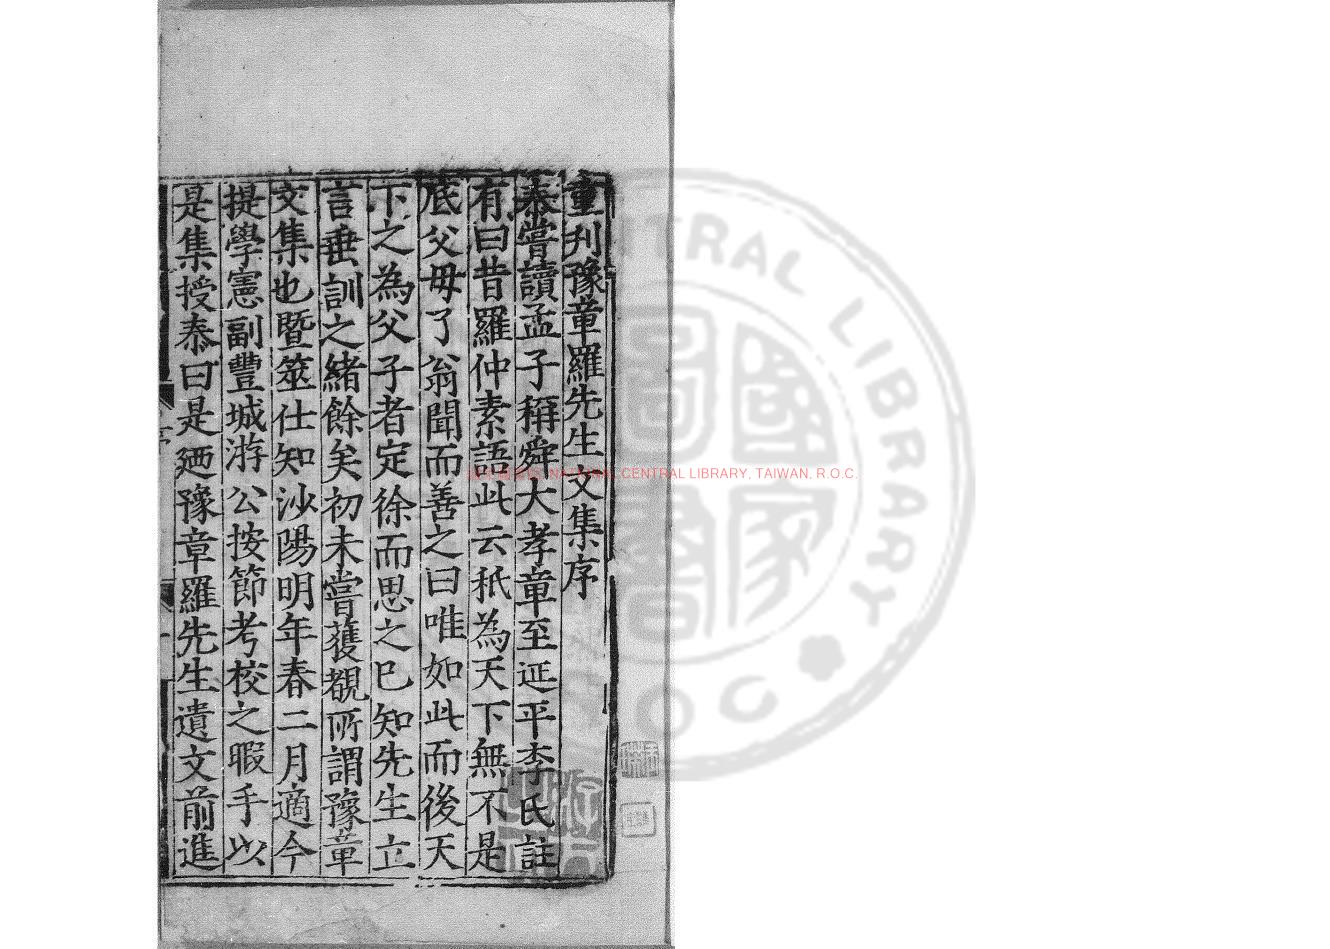 重刋豫章羅先生文集序
泰嘗讀孟子稱舜大孝章至延平李氏註
有曰昔羅仲素語此云秖為天下無不是
底父母了翁聞而善之曰唯如此而後天
下之為父子者定徐而思之已知先生立
言垂訓之緒餘矣初未嘗獲覩所謂豫章
文集也暨筮仕知沙陽明年春二月適今
提學憲副豐城游公按節考校之暇手以
是集授泰曰是廼豫章羅先生遺文前進
NATIONAL CENTRAL LIBRARY, TAIWAN, R.O.C.